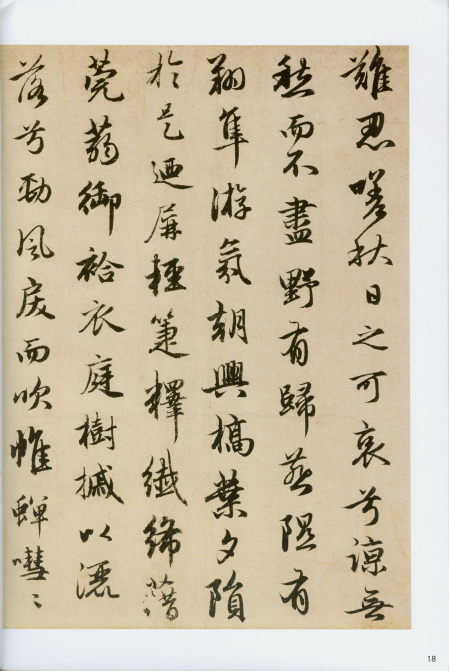 難忍嗟秋日之可哀兮諒無
愁而不盡野有歸燕隰有
翔隼游氛朝興槁葉夕隕
於是迺屏輕箑釋纖絺藉
莞蒻御袷衣庭樹槭以灑
落兮勁風戾而吹帷蟬嘒〻
18